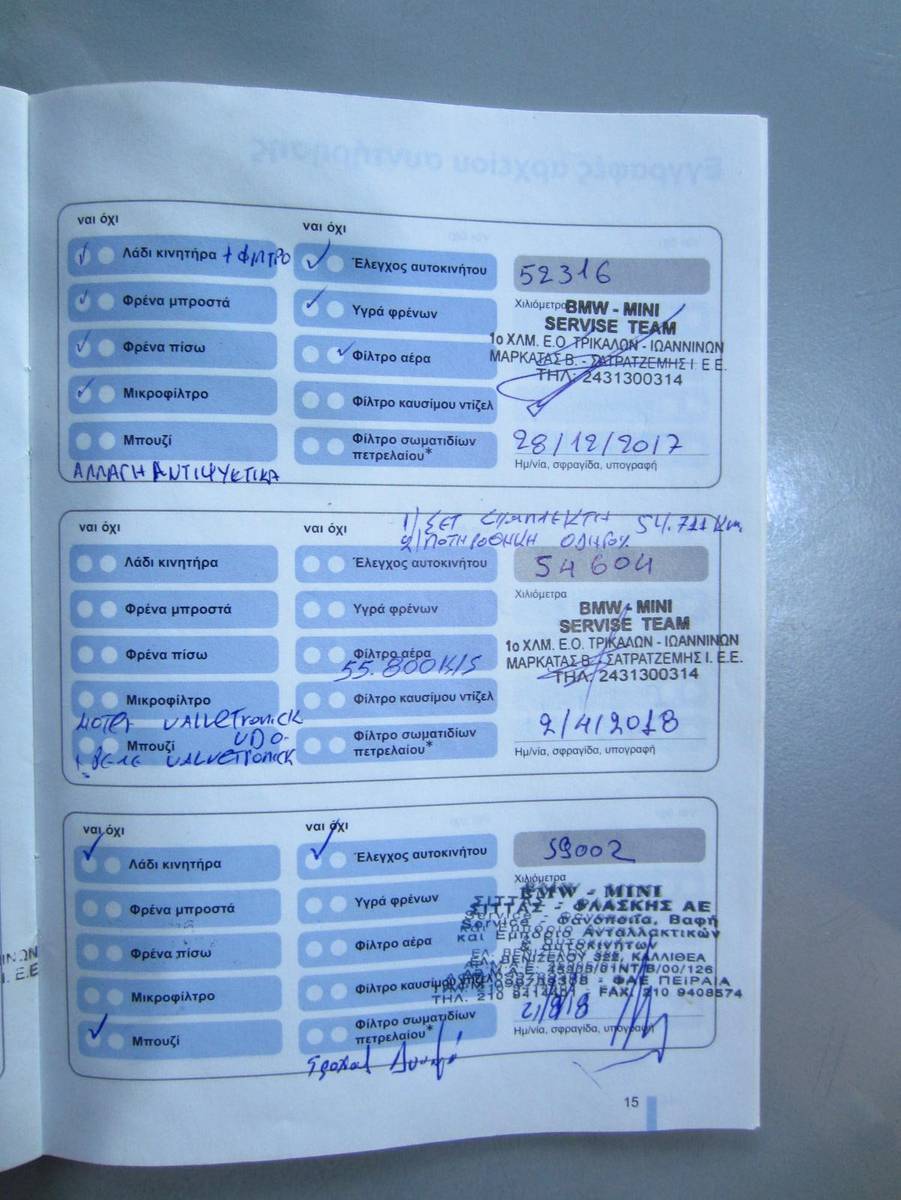 ναι όχι
ναι όχι
Λάδι κινητήρα + ΦΙΛΤΡΟ
Έλεγχος αυτοκινήτου
52316
Φρένα μπροστά
Υγρά φρένων
Χιλιόμετρα
BMW - MINI
SERVISE TEAM
Φρένα πίσω
Φίλτρο αέρα
1ο ΧΛΜ. Ε.Ο. ΤΡΙΚΑΛΩΝ - ΙΩΑΝΝΙΝΩΝ
ΜΑΡΚΑΤΑΣ Β. - ΣΑΤΡΑΤΖΕΜΗΣ Ι. Ε.Ε.
ΤΗΛ: 2431300314
Μικροφίλτρο
Φίλτρο καυσίμου ντίζελ
Μπουζί
Φίλτρο σωματιδίων
πετρελαίου*
28/12/2017
Ημ/νία, σφραγίδα, υπογραφή
ΑΛΛΑΓΗ ΑΝΤΙΨΥΚΤΙΚΑ
ναι όχι
ναι όχι
1) ΣΕΤ ΣΥΜΠΛΕΚΤΗ 54.711 Km
2) ΠΟΤΗΡΟΘΗΚΗ ΟΔΗΓΟΥ
Λάδι κινητήρα
Έλεγχος αυτοκινήτου
54604
Φρένα μπροστά
Υγρά φρένων
Χιλιόμετρα
BMW - MINI
SERVISE TEAM
Φρένα πίσω
Φίλτρο αέρα
1ο ΧΛΜ. Ε.Ο. ΤΡΙΚΑΛΩΝ - ΙΩΑΝΝΙΝΩΝ
ΜΑΡΚΑΤΑΣ Β. - ΣΑΤΡΑΤΖΕΜΗΣ Ι. Ε.Ε.
ΤΗΛ: 2431300314
55.800
Μικροφίλτρο
Φίλτρο καυσίμου ντίζελ
ΜΟΤΕΡ VALVETRONICK
VDO
Μπουζί
Φίλτρο σωματιδίων
πετρελαίου*
2/4/2018
Ημ/νία, σφραγίδα, υπογραφή
VALVETRONICK
ναι όχι
ναι όχι
Λάδι κινητήρα
Έλεγχος αυτοκινήτου
59002
Φρένα μπροστά
Υγρά φρένων
Χιλιόμετρα
BMW - MINI
ΣΙΤΤΑΣ - ΦΛΑΣΚΗΣ ΑΕ
Service - Φανοποιία, Βαφή
και Εμπόριο Ανταλλακτικών
& αυτοκινήτων
Φρένα πίσω
Φίλτρο αέρα
ΕΛ. ΒΕΝΙΖΕΛΟΥ 322, ΚΑΛΛΙΘΕΑ
ΦΑΕ ΠΕΙΡΑΙΑ
FAX: 210 9408574
Μικροφίλτρο
Φίλτρο καυσίμου ντίζελ
Μπουζί
Φίλτρο σωματιδίων
πετρελαίου*
Ημ/νία, σφραγίδα, υπογραφή
15